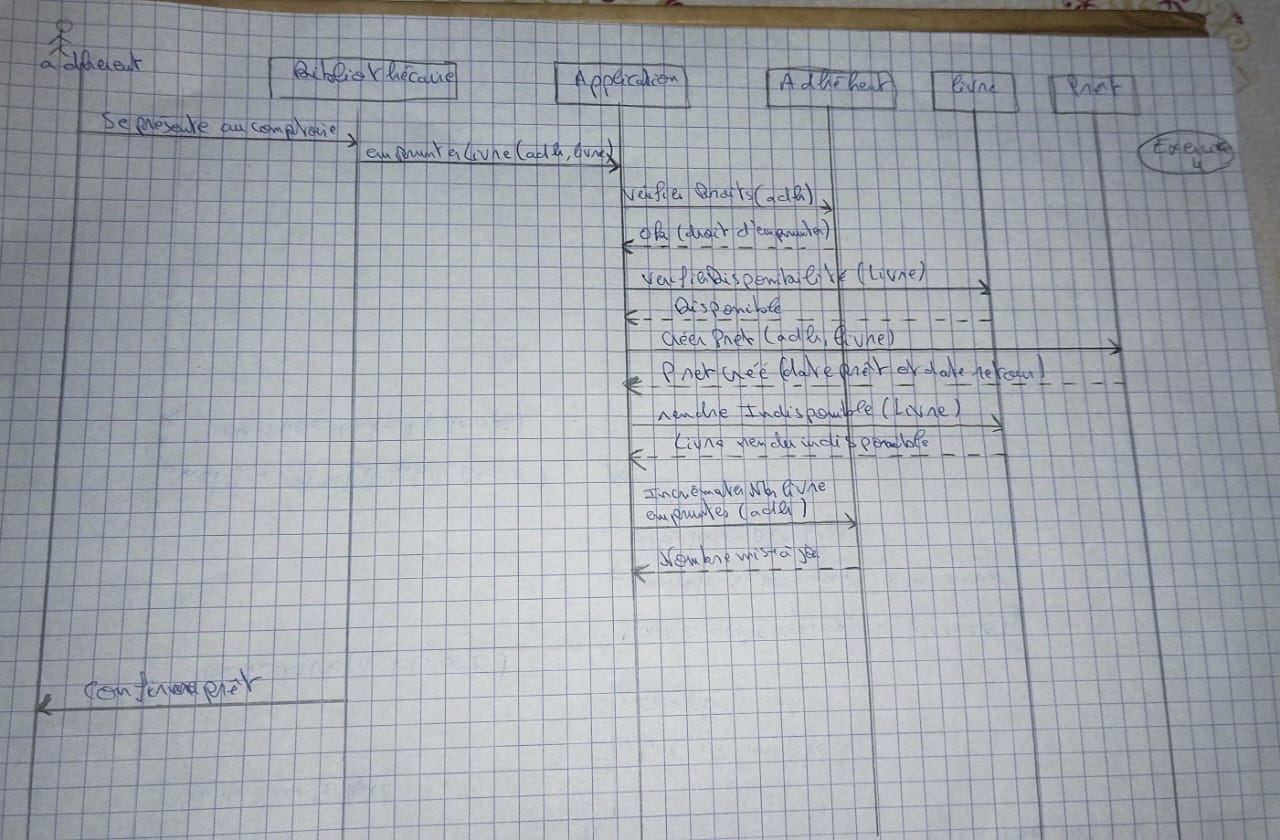 adherent
Bibliothécaire
Application
Adhérent
livre
Pret
Se présente au comptoire
emprunter Livre (adh, livre)
Exercice
4
vérifier Droits (adh)
Ok (droit d'emprunter)
verifier Disponibilité (Livre)
Disponible
créer Prêt (adh, livre)
Pret créé (date prêt et date retour)
rendre Indisponible (Livre)
Livre rendu indisponible
Incrémenter Nb livre
empruntés (adh)
Nombre mis à jour
Confirme prêt